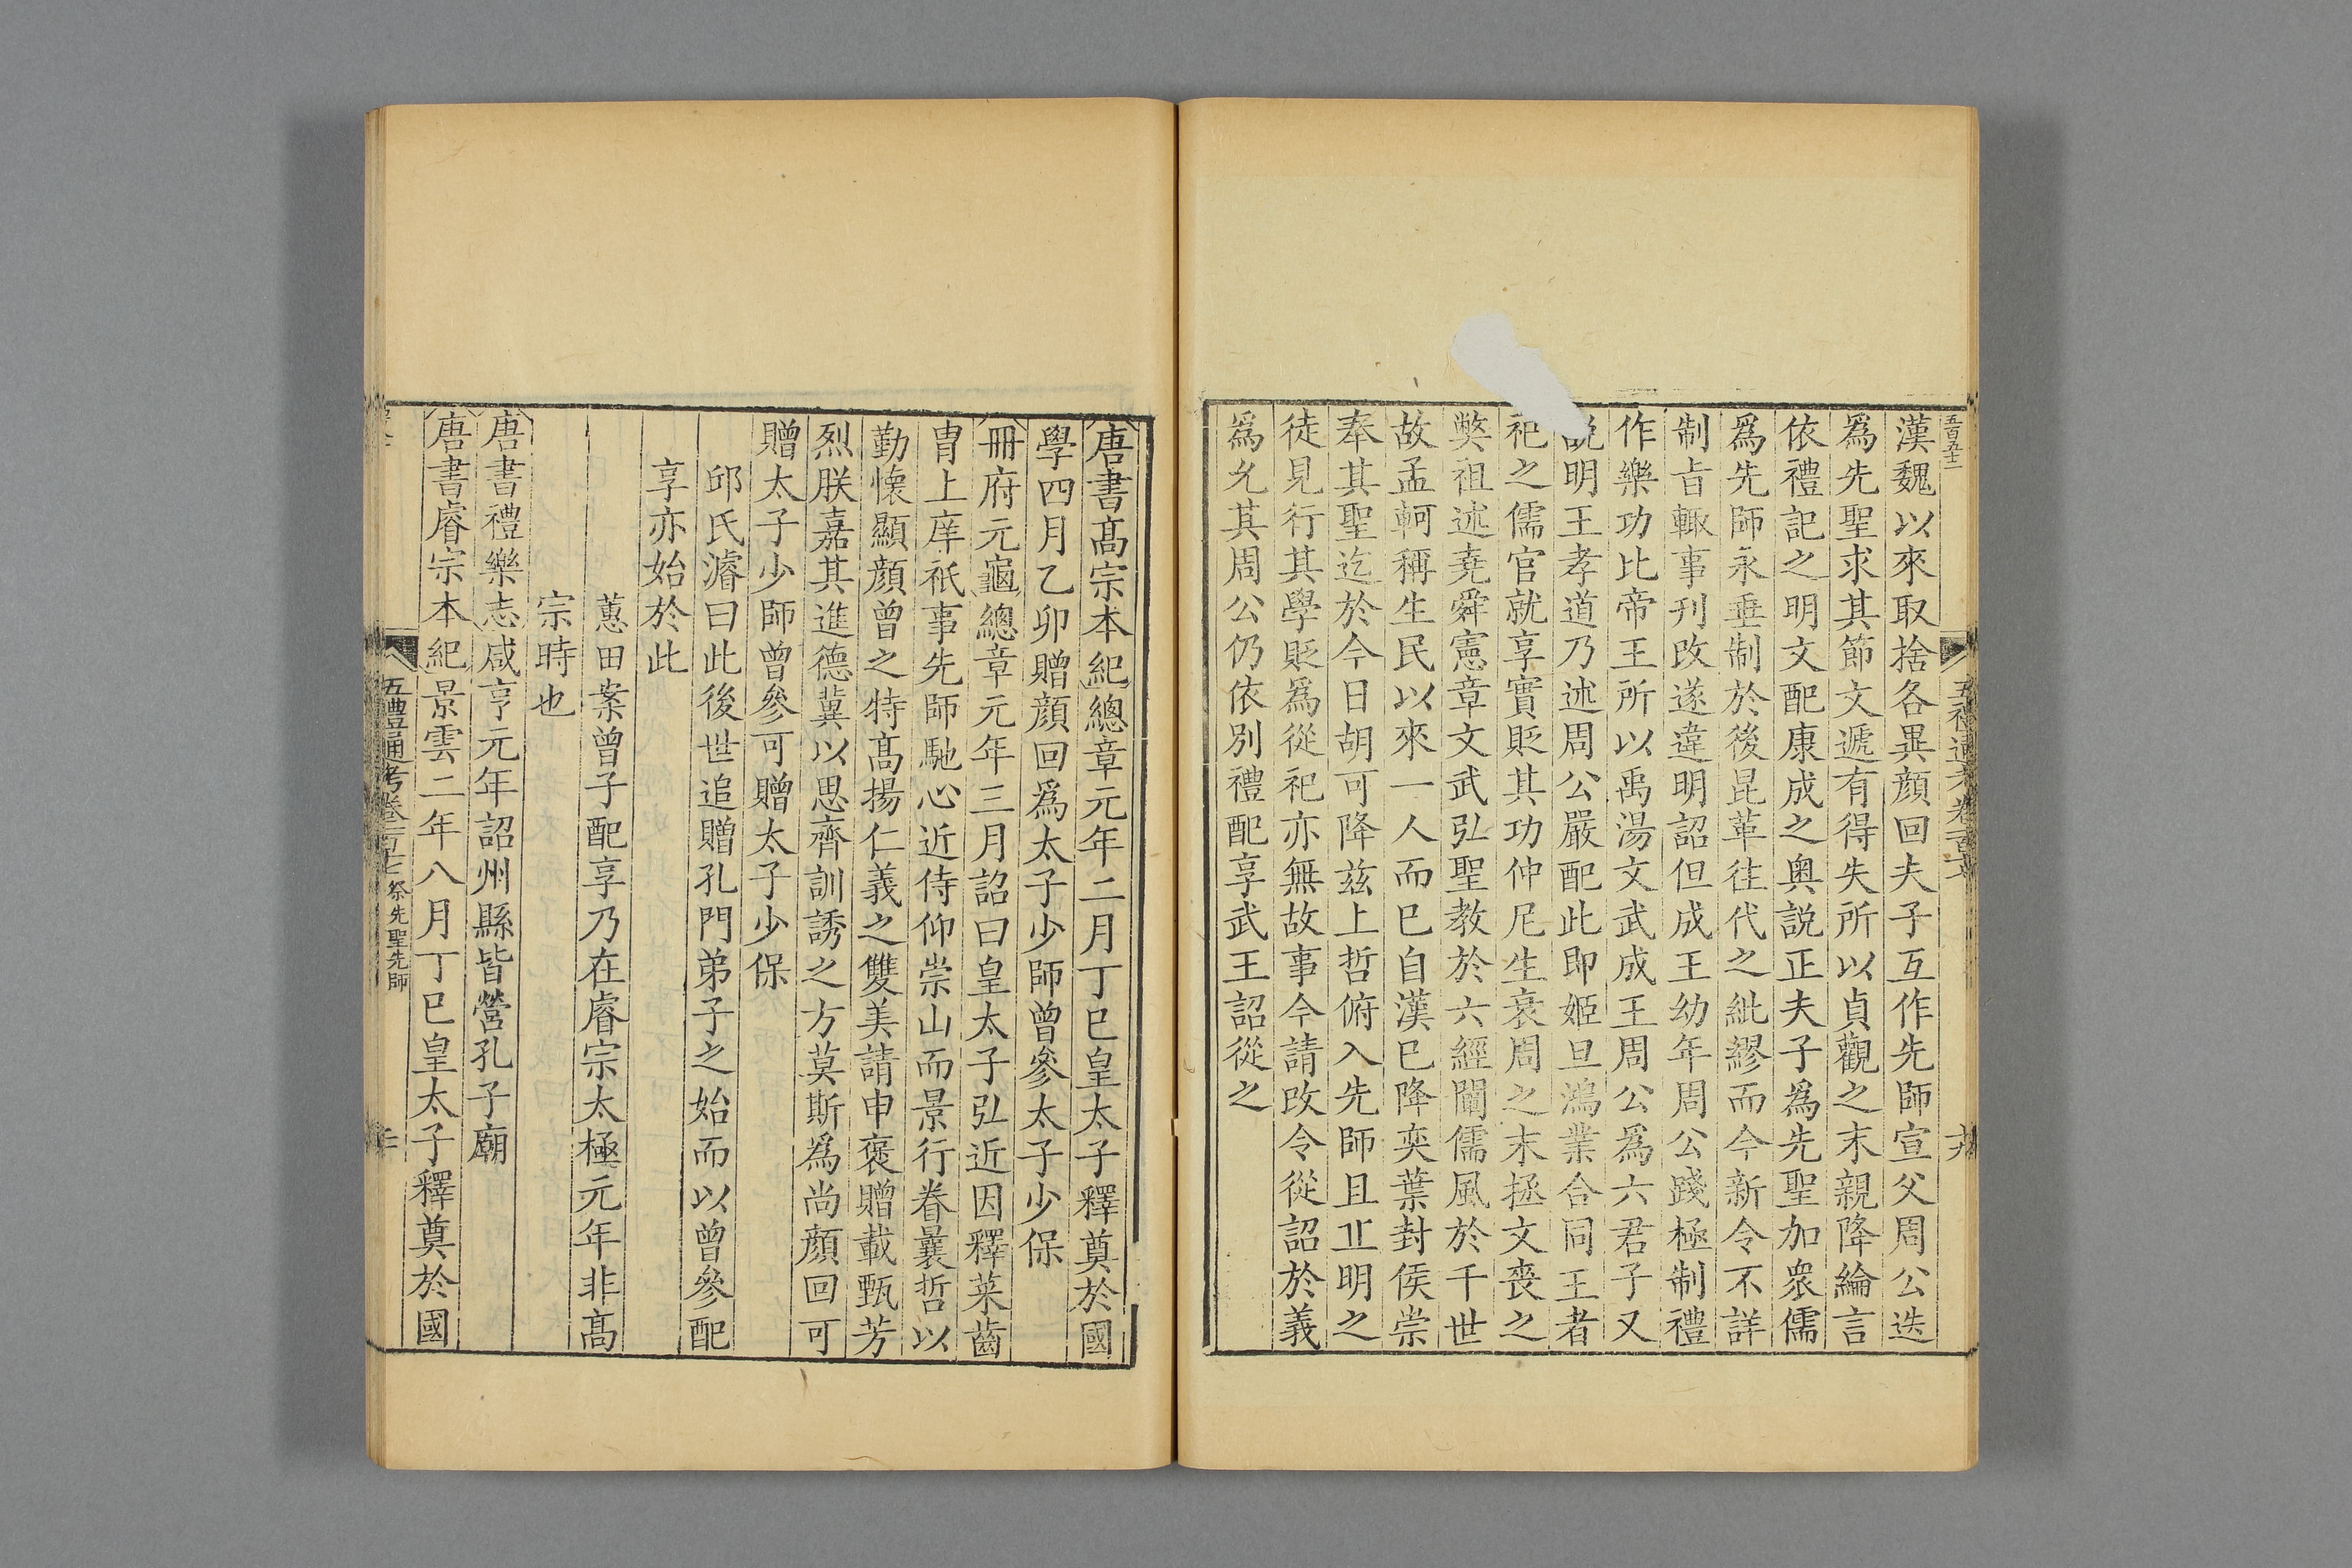 漢魏以來取捨各異顔回夫子互作先師宣父周公迭
爲先聖求其節文遞有得失所以貞觀之末親降綸言
依禮記之明文配康成之奥説正夫子爲先聖加衆儒
爲先師永垂制於後昆革往代之紕繆而今新令不詳
制旨輙事刊改遂違明詔但成王幼年周公踐極制禮
作樂功比帝王所以禹湯文武成王周公爲六君子又
説明王孝道乃述周公嚴配此即姬旦鴻業合同王者
祀之儒官就享實貶其功仲尼生衰周之末拯文喪之
獘祖述堯舜憲章文武弘聖教於六經闡儒風於千世
故孟軻稱生民以來一人而已自漢已降奕葉封侯崇
奉其聖迄於今日胡可降茲上哲俯入先師且丘明之
徒見行其學貶爲從祀亦無故事今請改令從詔於義
爲允其周公仍依别禮配享武王詔從之
唐書髙宗本紀總章元年二月丁巳皇太子釋奠於國
學四月乙卯贈顔回爲太子少師曾參太子少保
冊府元龜總章元年三月詔曰皇太子弘近因釋菜齒
胄上庠祇事先師馳心近侍仰崇山而景行眷曩哲以
勤懷顯顔曾之特髙揚仁義之雙美請申褒贈載甄芳
烈朕嘉其進德冀以思齊訓誘之方莫斯爲尚顔回可
贈太子少師曾參可贈太子少保
邱氏濬曰此後世追贈孔門弟子之始而以曾參配
享亦始於此
蕙田案曾子配享乃在睿宗太極元年非髙
宗時也
唐書禮樂志咸亨元年詔州縣皆營孔子廟
唐書睿宗本紀景雲二年八月丁巳皇太子釋奠於國
五禮通考卷一百十七 祭先聖先師